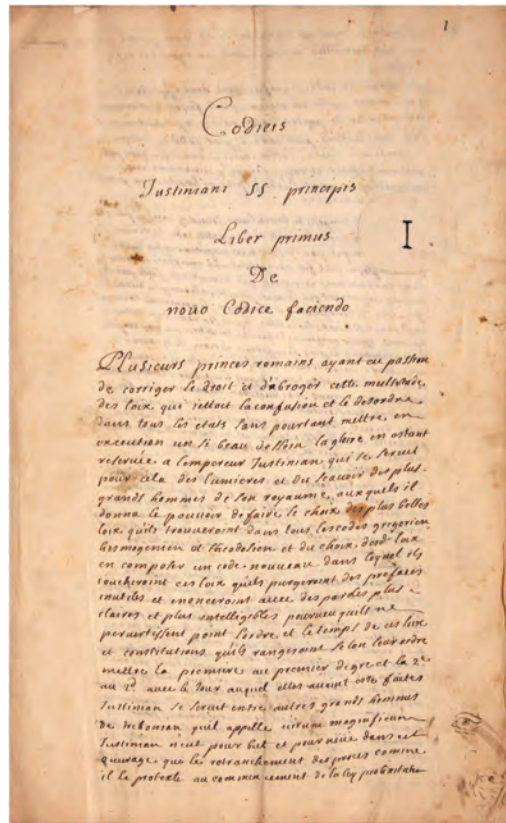 1
Codicis
Justiniani SS. principis
Liber primus
I
De
nouo Codice faciendo
Plusieurs princes romains ayant eu passion
de corriger le droit et d'abroger cette multitude
des loix qui jettoit la confusion et le desordre
dans tous les etats sans pourtant mettre en
execution un si beau dessein la gloire en estant
reservée a l'empereur Justinian qui se servit
pour cela des lumieres et du scavoir des plus
grands hommes de son royaume, auxquels il
donna le pouvoir de faire le choix des plus belles
loix quils trouueroint dans tous les codes gregorien
hermogenien et theodosien et du choix desd. loix
en composer un code nouveau dans lequel ils
coucheroint ces loix quils purgeroint des prefaces
inutiles et enonceroint avec des paroles plus
claires et plus intelligibles pourveu quils ne
pervertissent point l'ordre et le temps de ces loix
et constitutions quils rangeroint selon leur ordre
mettre la premiere au premier degre et la 2e
au 2d avec le jour auquel elles avaint esté faites
Justinian se servit entre autres grands hommes
de quil appelle virum magnificum
Justinian n'eut pour but et pour dans cet
ouvrage que le retranchement des proces comme
il le proteste au commencement de la loy